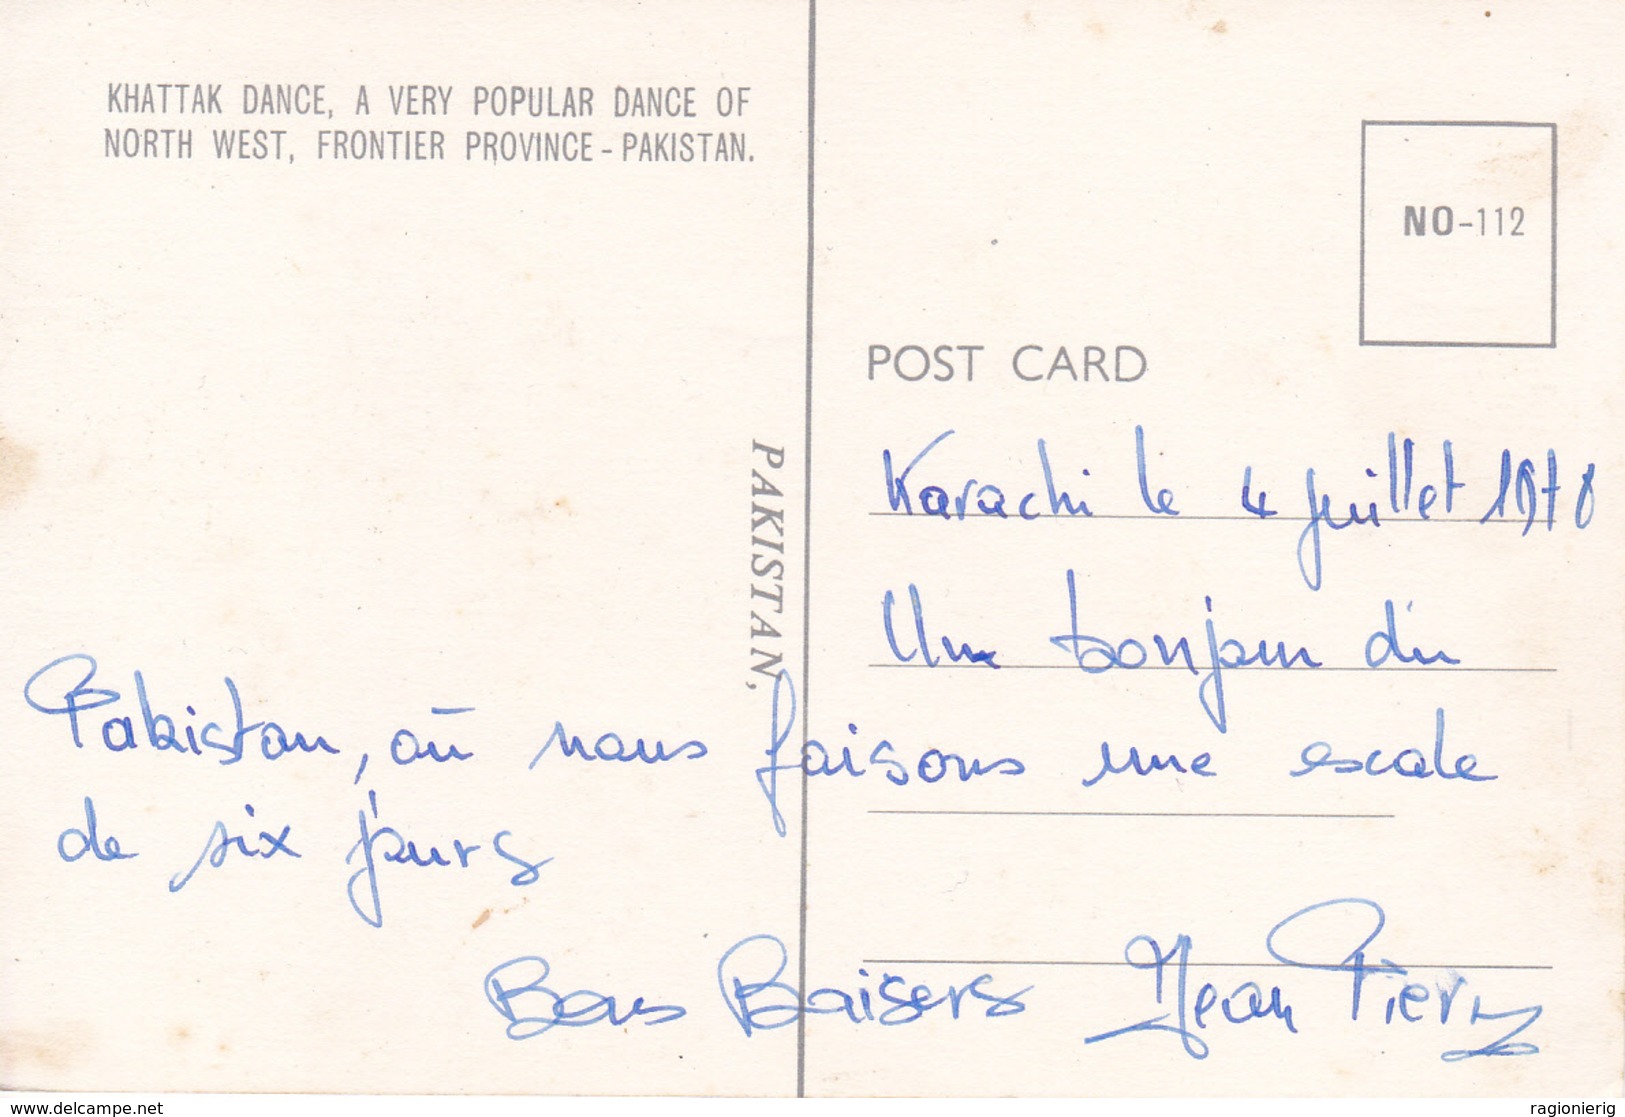 KHATTAK DANCE, A VERY POPULAR DANCE OF
NORTH WEST, FRONTIER PROVINCE - PAKISTAN.
NO-112
POST CARD
PAKISTAN,
Karachi le 4 juillet 1978
Un bonjour du
Pakistan, où nous faisons une escale
de six jours
Bons Baisers Jean Pierre
www.delcampe.net
ragionierig